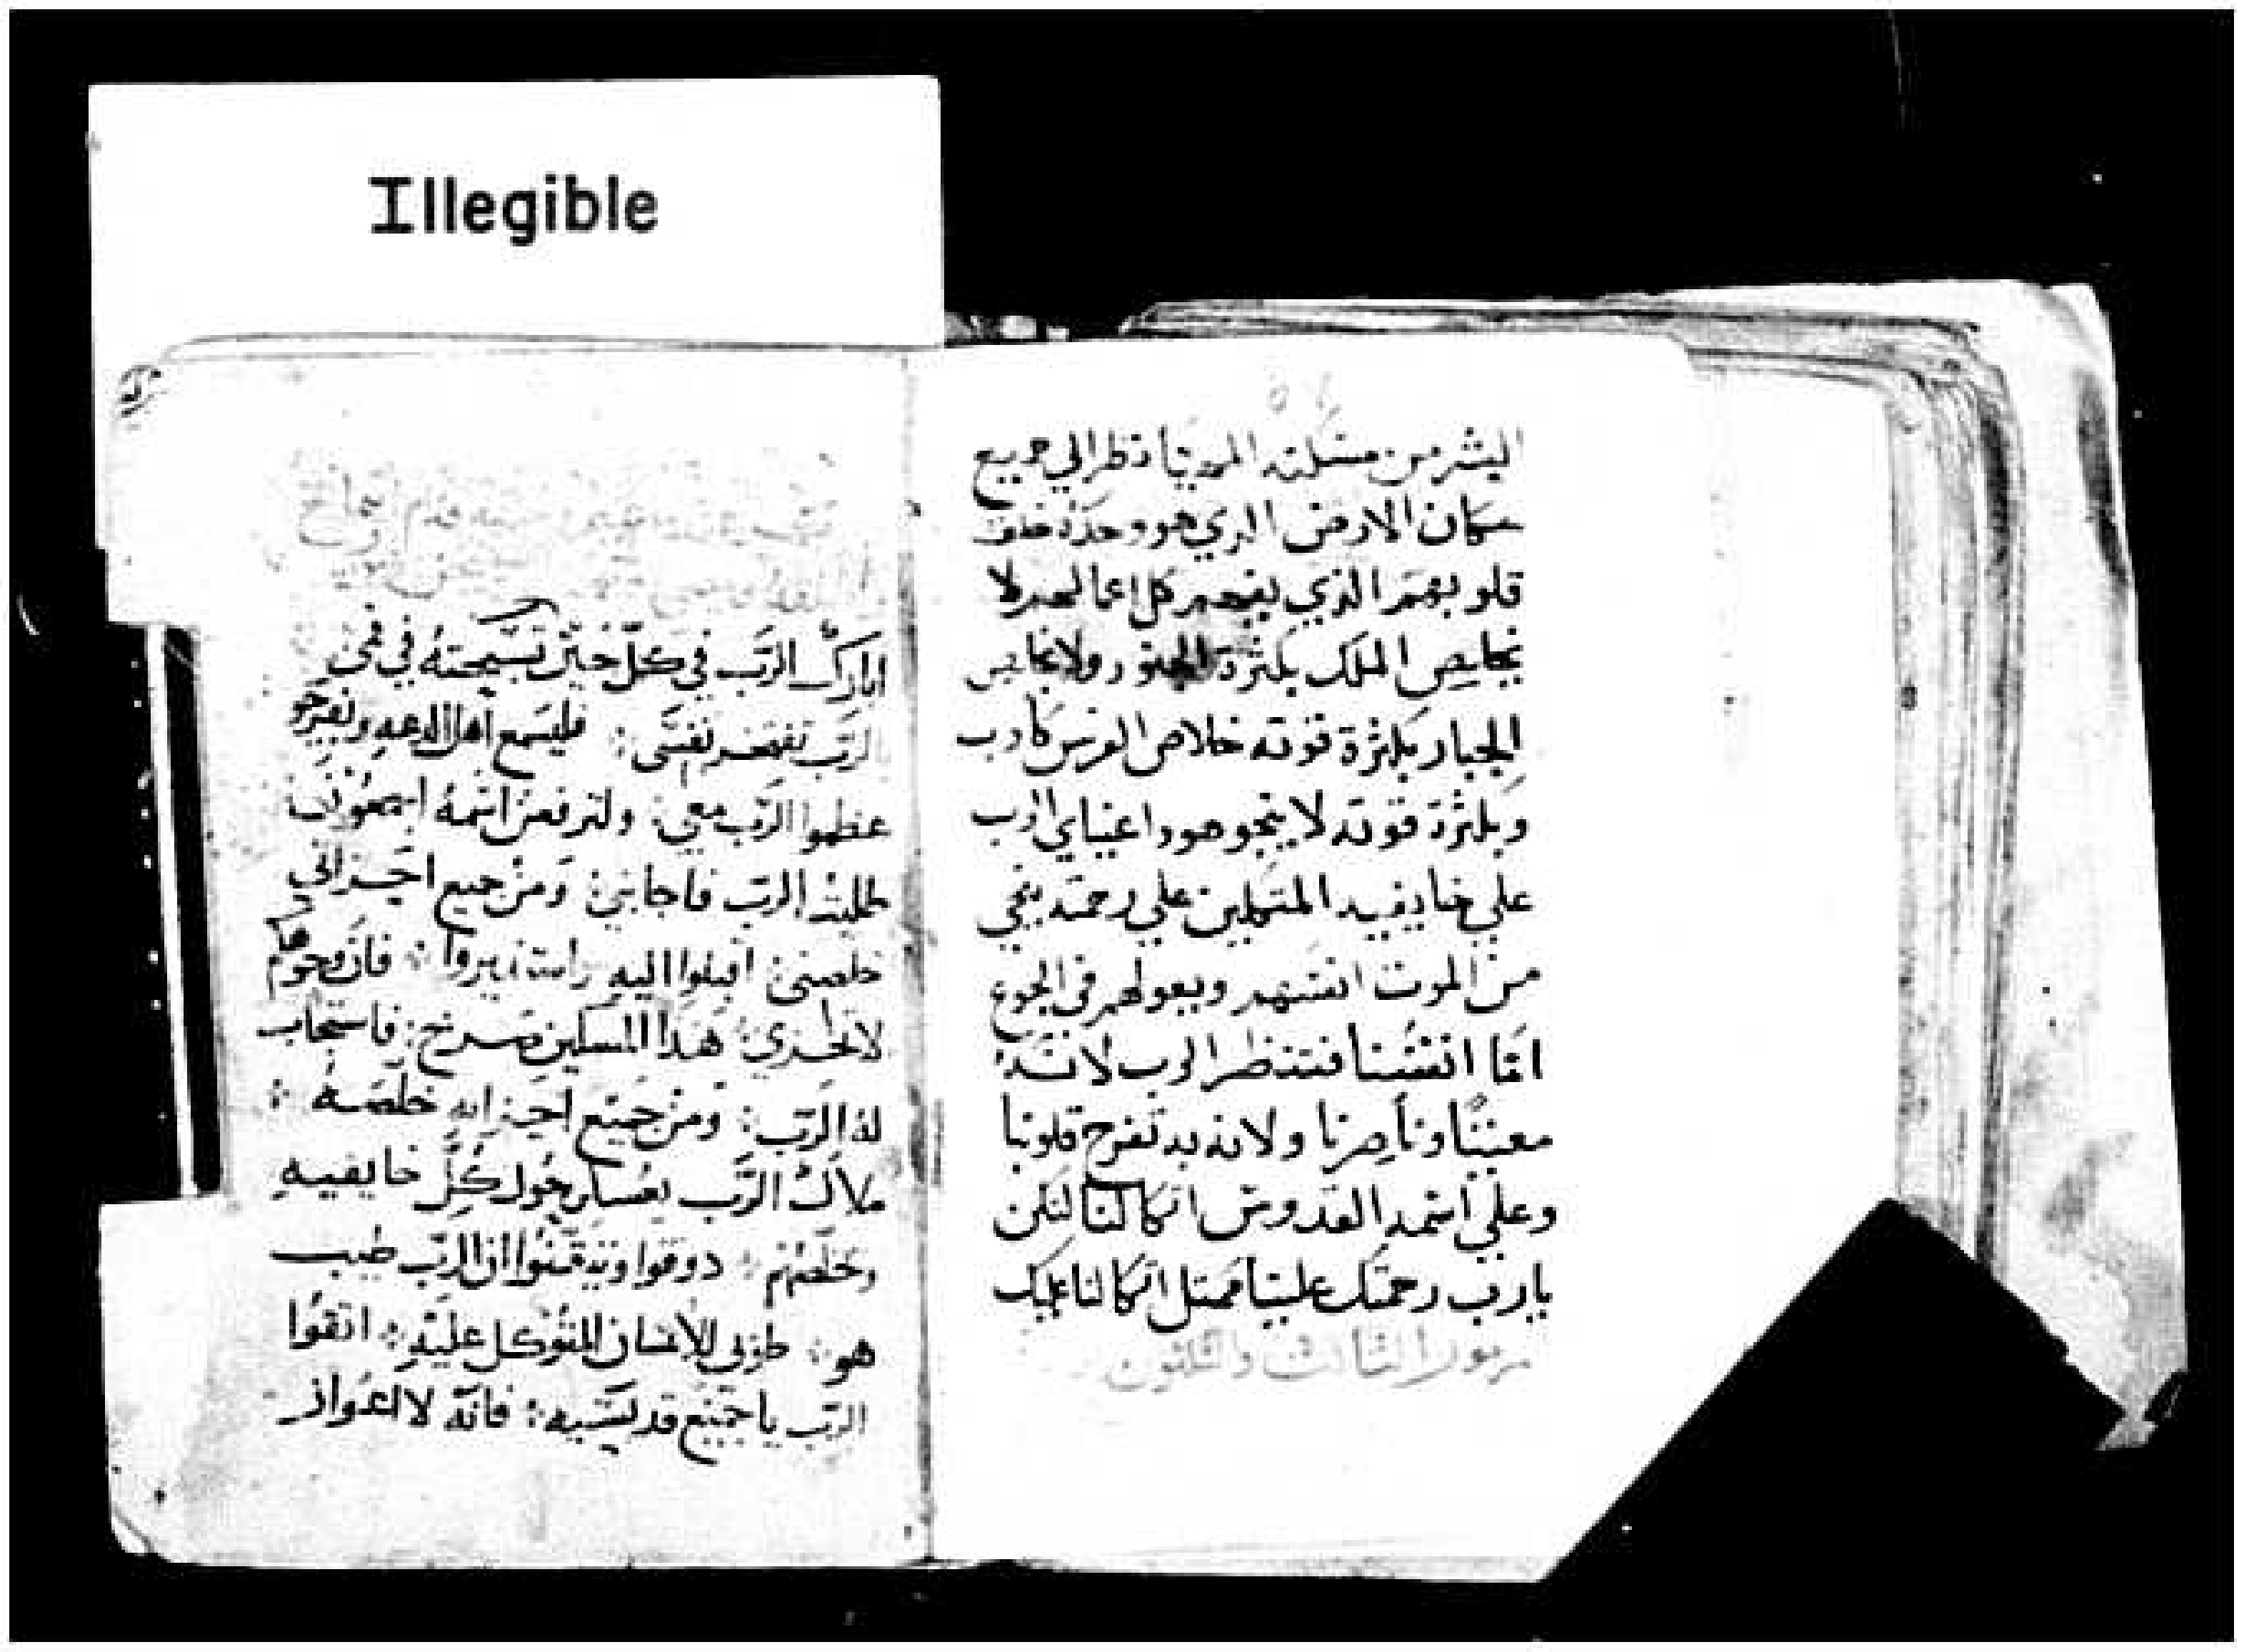 Illegible
البشر من مسكنه المهيا نظر الي جميع
سكان الارض الدي هو وحده خلق
قلوبهم الذي يفهم كل اعمالهم لا
يخلص الملك بكثرة الجنود ولا يخلص
الجبار بكثرة قوته خلاص الفرس كادب
وبكثرة قوته لا ينجو هودا عيناي الرب
علي خايفيه المتكلين علي رحمته ينجي
من الموت انفسهم ويعولهم في الجوع
اما انفسنا فتنتظر الرب لانه
معيننا وناصرنا ولانه به تفرح قلوبنا
وعلي اسمه القدوس اتكالنا لتكن
يارب رحمتك علينا كمثل اتكالنا عليك
مزمور الثالث والثلثون
ابارك الرب في كل حين تسبحته في فمي
الرب تفتخر نفسي : فليسمع اهل الدعه ويفرحو
عظموا الرب معي : ولنرفعن اسمه اجمعون
طلبت الرب فاجابني : ومن جميع احزاني
خلصني : اقبلوا اليه واستنيروا : فان وجوهكم
لا تخزي : هذا المسكين صرخ : فاستجاب
له الرب : ومن جميع احزانه خلصه :
ملاك الرب يعسكر حول كل خايفيه
وخلصهم : دوقوا وتيقنوا ان الرب طيب
هو : طوبي للانسان المتوكل عليه : اتقوا
الرب يا جميع قديسيه : فانه لا اعواز